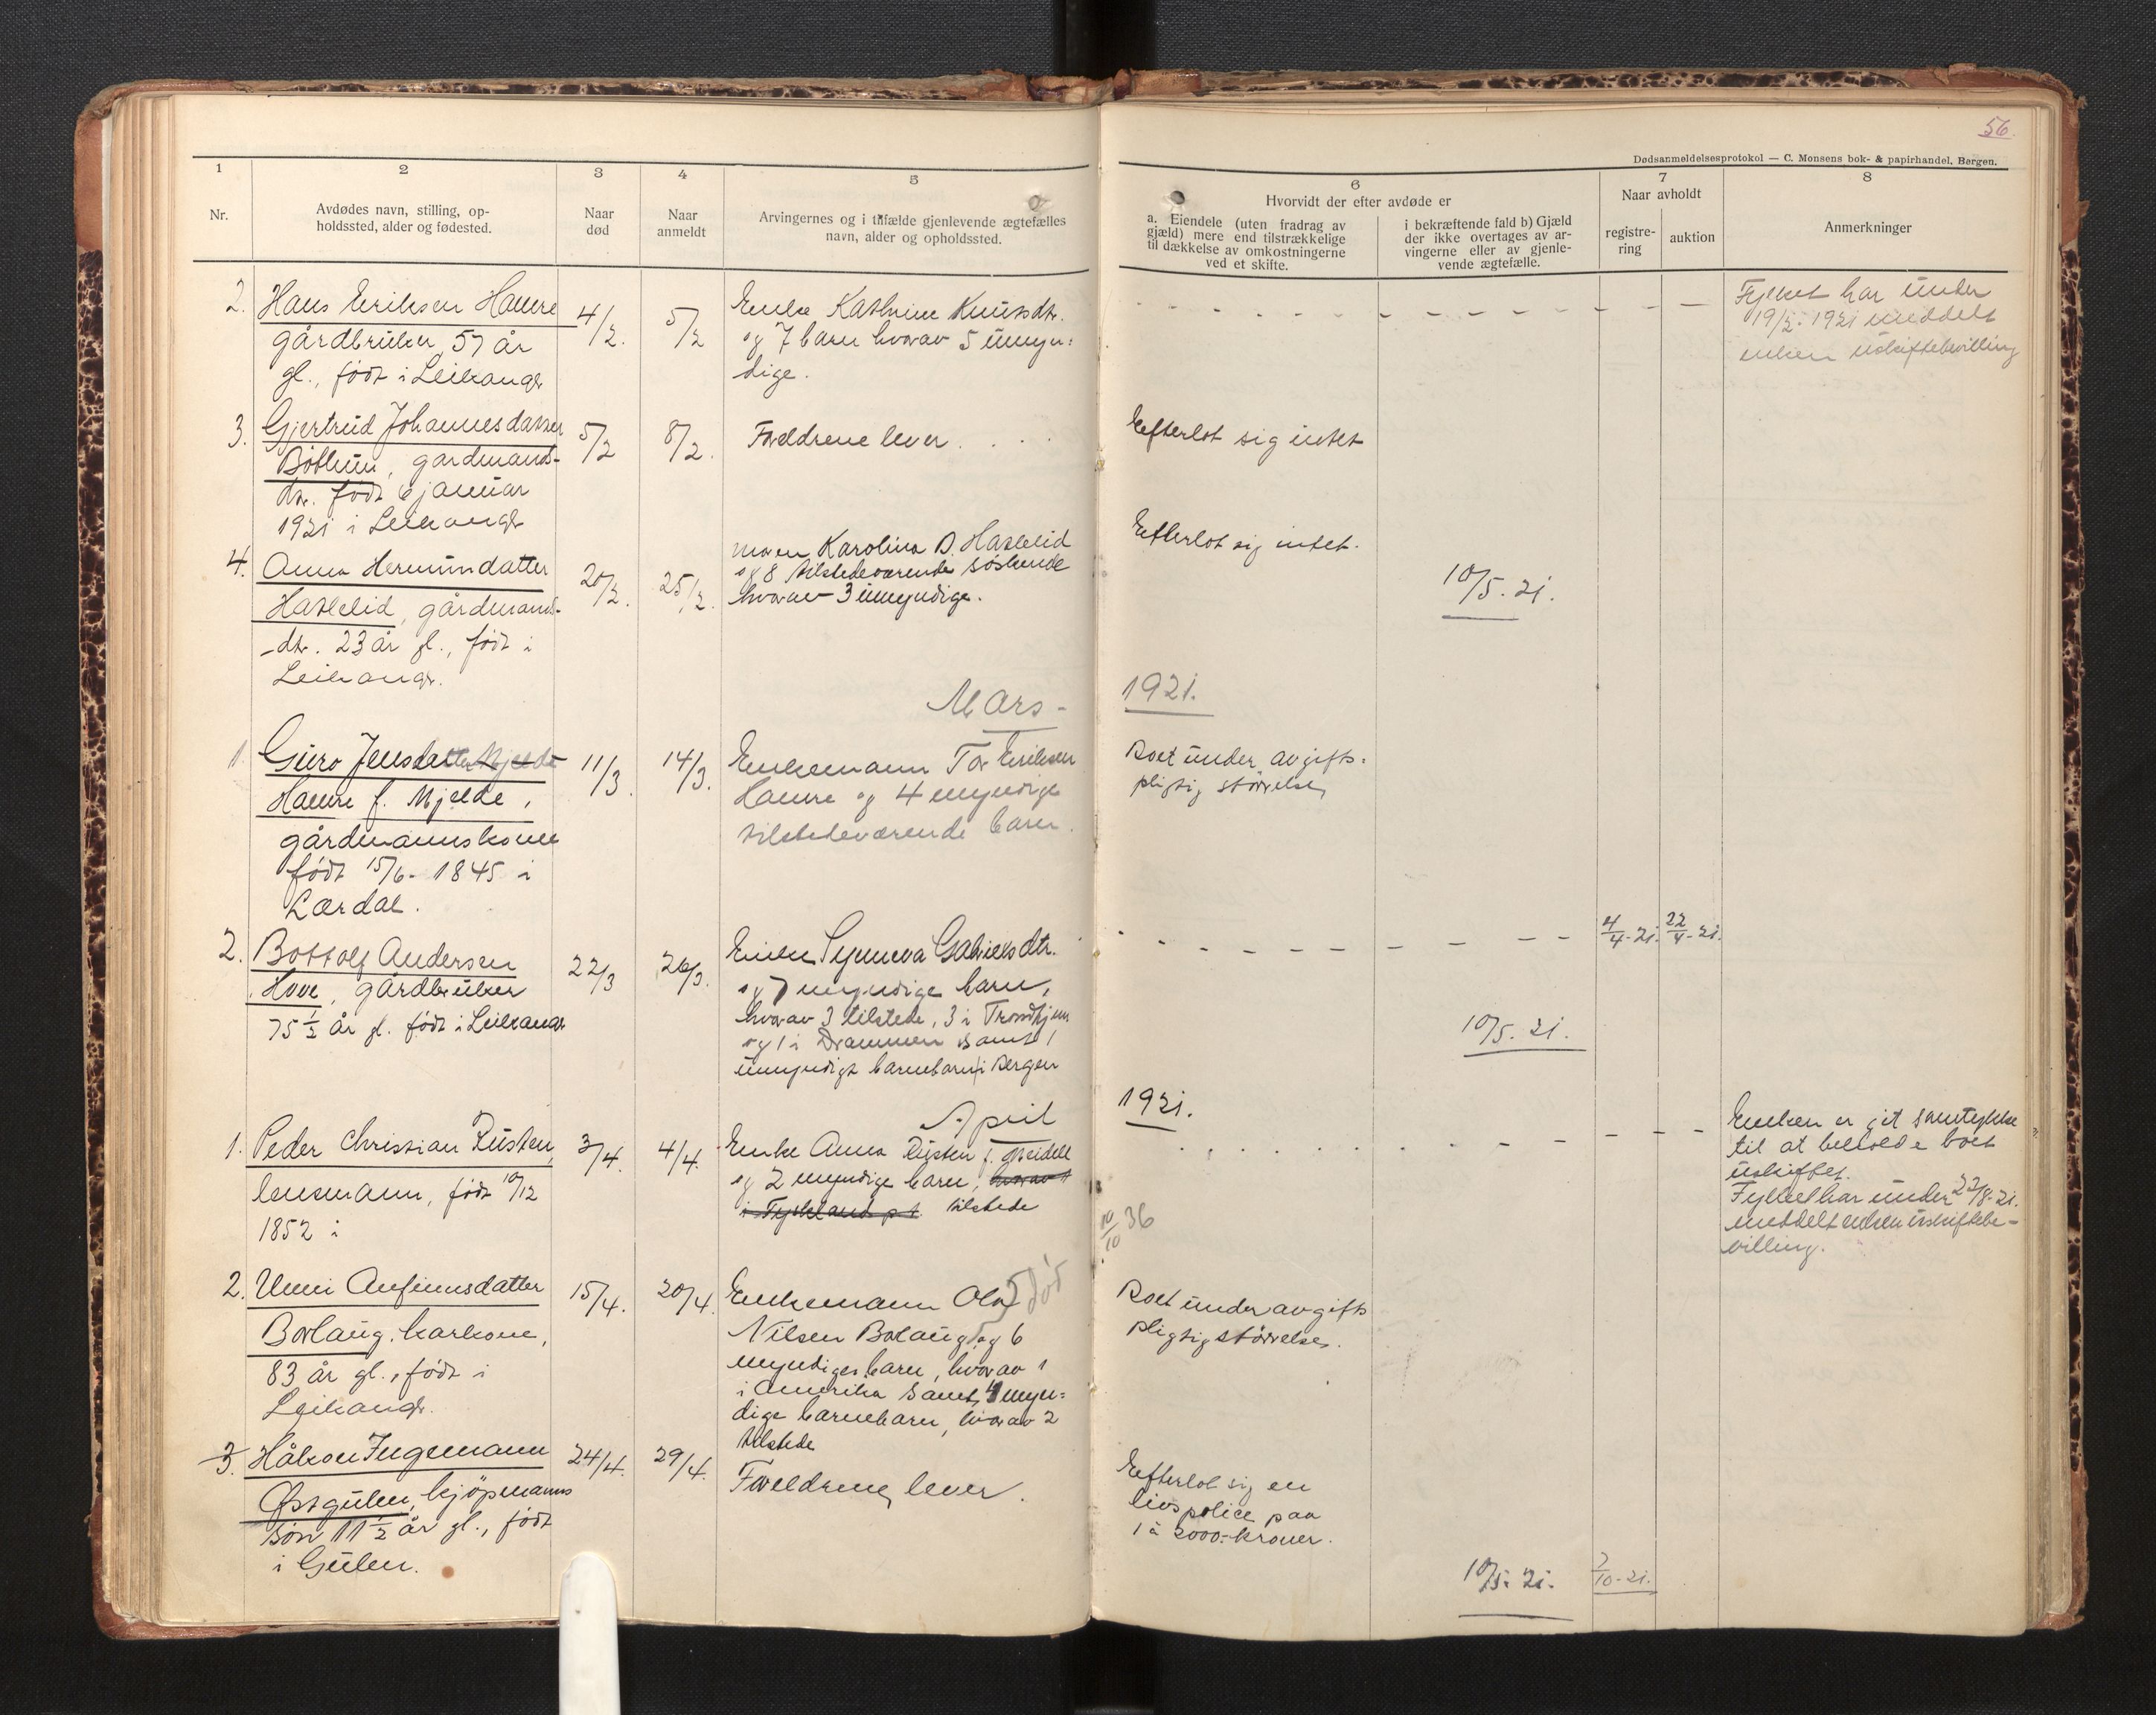 56.
Dødsanmeldelsesprotokol — C. Monsens bok- & papirhandel, Bergen.
1
2
3
4
5
6
7
8
Nr.
Avdødes navn, stilling, op-
holdssted, alder og fødested.
Naar
død
Naar
anmeldt
Arvingernes og i tilfælde gjenlevende ægtefælles
navn, alder og opholdssted.
Hvorvidt der efter avdøde er
a. Eiendele (uten fradrag av
gjæld) mere end tilstrækkelige
til dækkelse av omkostningerne
ved et skifte.
i bekræftende fald b) Gjæld
der ikke overtages av ar-
vingerne eller av gjenle-
vende ægtefælle.
Naar avholdt
registre-
ring
auktion
Anmerkninger
2. Hans Eriksen Hamre
gårdbruker, 57 år
gl., født i Leikangr
4/2.
5/2
Enke Kathrine Knutsdtr.
og 7 barn hvorav 5 umyn-
dige.
Fylket har under
19/2. 1921 meddelt
enken uskiftebevilling
3. Gjertrud Johannesdatter
Bøthun, gardmands-
dtr. født 6 januar
1921 i Leikangr
5/2
8/2.
Foreldrene lever . . .
Efterlot sig intet
4. Anna Hermundatter
Hatlelid, gårdmands-
dtr. 23 år gl., født i
Leikangr.
20/2.
25/2.
moren Karolina D. Hatlelid
og 8 tilstedeværende søskende
hvorav 3 umyndige.
Efterlot sig intet.
10/5. 21.
Mars - 1921.
1. Guro Jensdatter Mjelde
Hamre f. Mjelde,
gårdmannskone
født 15/6- 1845 i
Lærdal.
11/3.
14/3.
Enkemann Tor Eriksen
Hamre og 4 myndige
tilstedeværende barn.
Boet under avgifts-
pligtig størrelse
2. Bottolf Andersen
Hove, gårdbruker
75 1/2 år gl. født i Leikangr
22/3
26/3.
Enke Synneva Gabrielsdtr.
og 7 myndige barn,
hvorav 3 tilstede, 3 i Trondhjem
og 1 i Drammen samt 1
umyndigt barnebarn i Bergen
4/4-21.
22/4-21.
10/5. 21.
April 1921.
1. Peder Christian Rusten,
lensmann, født 10/12
1852 i
3/4.
4/4.
Enke Anna Rusten f.
og 2 myndige barn, hvorav 1
i Tyskland p.t. tilstede
10/10 36
Enken er git samtykke
til at beholde boet
uskiftet.
Fylket har under 22/8-21.
meddelt enken uskiftebe-
villing.
2. Unni Anfinnsdatter
Borlaug, karkone,
83 år gl., født i
Leikangr.
15/4.
20/4.
Enkemann Ola død
Nilsen Bolaug og 6
myndige barn, hvorav 1
i Amerika samt 4 myn-
dige barnebarn, hvorav 2
tilstede
Boet under avgifts
pligtig størrelse.
3. Håkon Ingemann
Østgulen, kjøpmanns
søn 11 1/2 år gl., født
i Gulen.
24/4.
29/4.
Foreldrene lever.
Efterlot sig en
livspolice paa
1 à 2000.- kroner.
10/5. 21.
7/10-21.